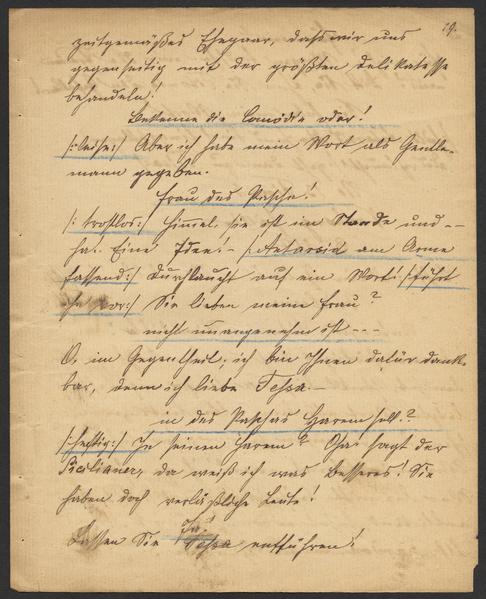 19.
zeitgemäßes Ehepaar, dass wir uns
gegenseitig mit der größten Delikatesse
behandeln!
Bekenne die Comödie oder!
/:leise:/ Aber ich habe mein Wort als Gentle-
mann gegeben.
Frau des Pascha!
/:trostlos:/ Himmel, sie ist im Stande und --
ha! Eine Idee! - /:Antarsid am Arme
fassend:/ Durchlaucht auf ein Wort! /:führt
ihn vor:/ Sie lieben meine Frau?
nicht unangenehm ist ---
O, im Gegentheil, ich bin Ihnen dafür dank-
bar, denn ich liebe Tessa.-
in des Paschas Harem soll?
/:heftig:/ In seinen Harem? Oha! sagt der
Sicilianer, da weiß ich was Besseres! Sie
haben doch verläßliche Leute!
Ja!
Lassen Sie Tessa entführen!